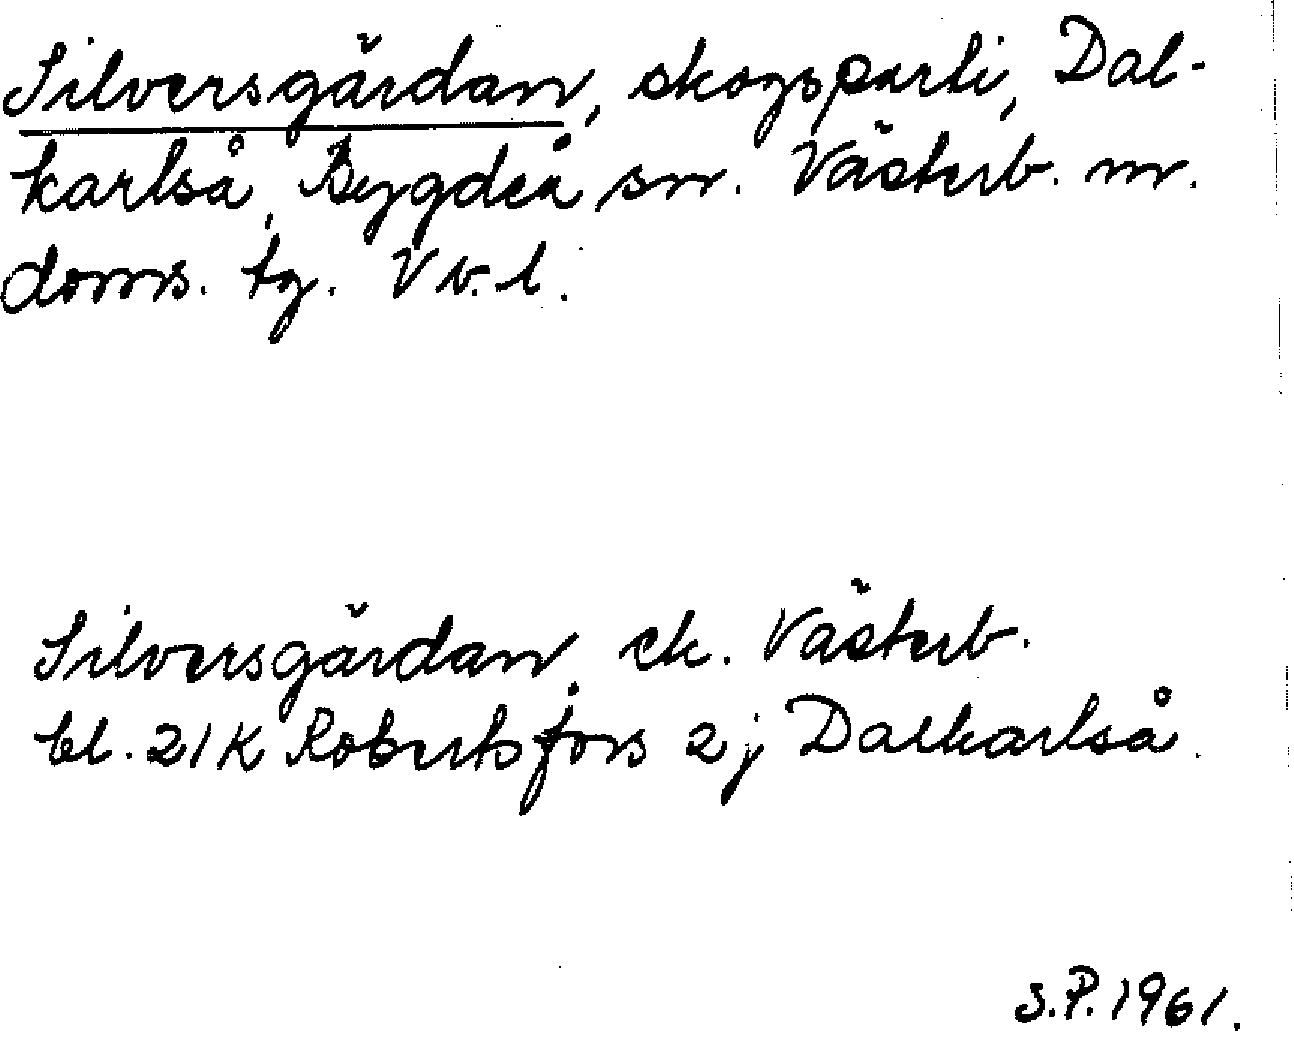 Silversgärdan, skogsparti, Dal-
karlså, Bygdeå sn. Västerb. m.
doms. tg. Vb.l.
Silversgärdan, ek. Västerb.
bl. 21K Robertsfors 2j Dalkarlså.
S.P. 1961.